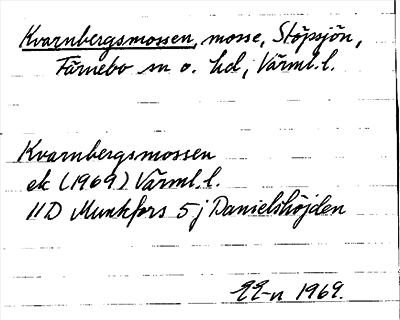 Kvarnbergsmossen, mosse, Stöpsjön,
Färnebo sn o. hd, Värml. l.
Kvarnbergsmossen
ek (1969) Värml. l.
11D Munkfors 5 j Danielshöjden
1969.